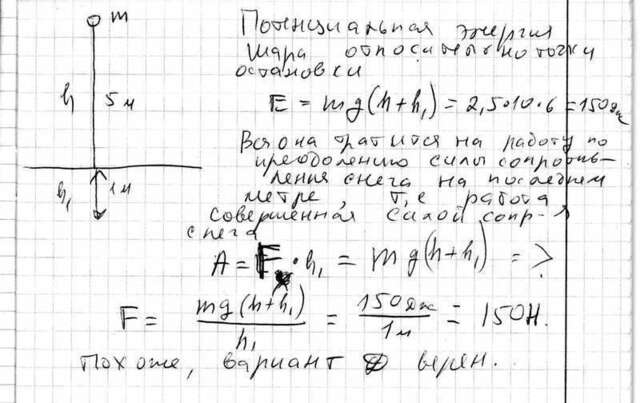 m
Потенциальная энергия
шара относительно точки
остановки
h 5м
E = mg(h+h₁) = 2,5·10·6 = 150 Дж
Вся она тратится на работу по
преодолению силы сопротив-
ления снега на последнем
h₁ 1м
метре, т.е работа
совершённая силой сопр-я
снега
A = F·h₁ = mg(h+h₁) =>
F = mg(h+h₁) / h₁ = 150Дж / 1м = 150Н.
Похоже, вариант верен.